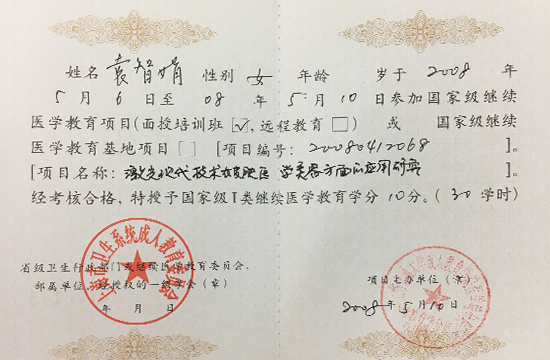 姓名 袁智娟 性别 女 年龄 岁于 2008 年
5 月 6 日至 08 年 5 月 10 日参加国家级继续
医学教育项目(面授培训班[✓],远程教育□) 或 国家级
医学教育基地项目[ ] [项目编号:20080412068 ]。
[项目名称:激光现代技术在 医学美容方面的应用研究 ]。
经考核合格,特授予国家级Ⅰ类继续医学教育学分 10 分。(30 学时)
上海市卫生系统成人教育委员会
省级卫生行政部门或继续医学教育委员会、
部属单位、经授权的一级学会(章)
年 月 日
项目主办单位(章)
2008年 5 月 10 日